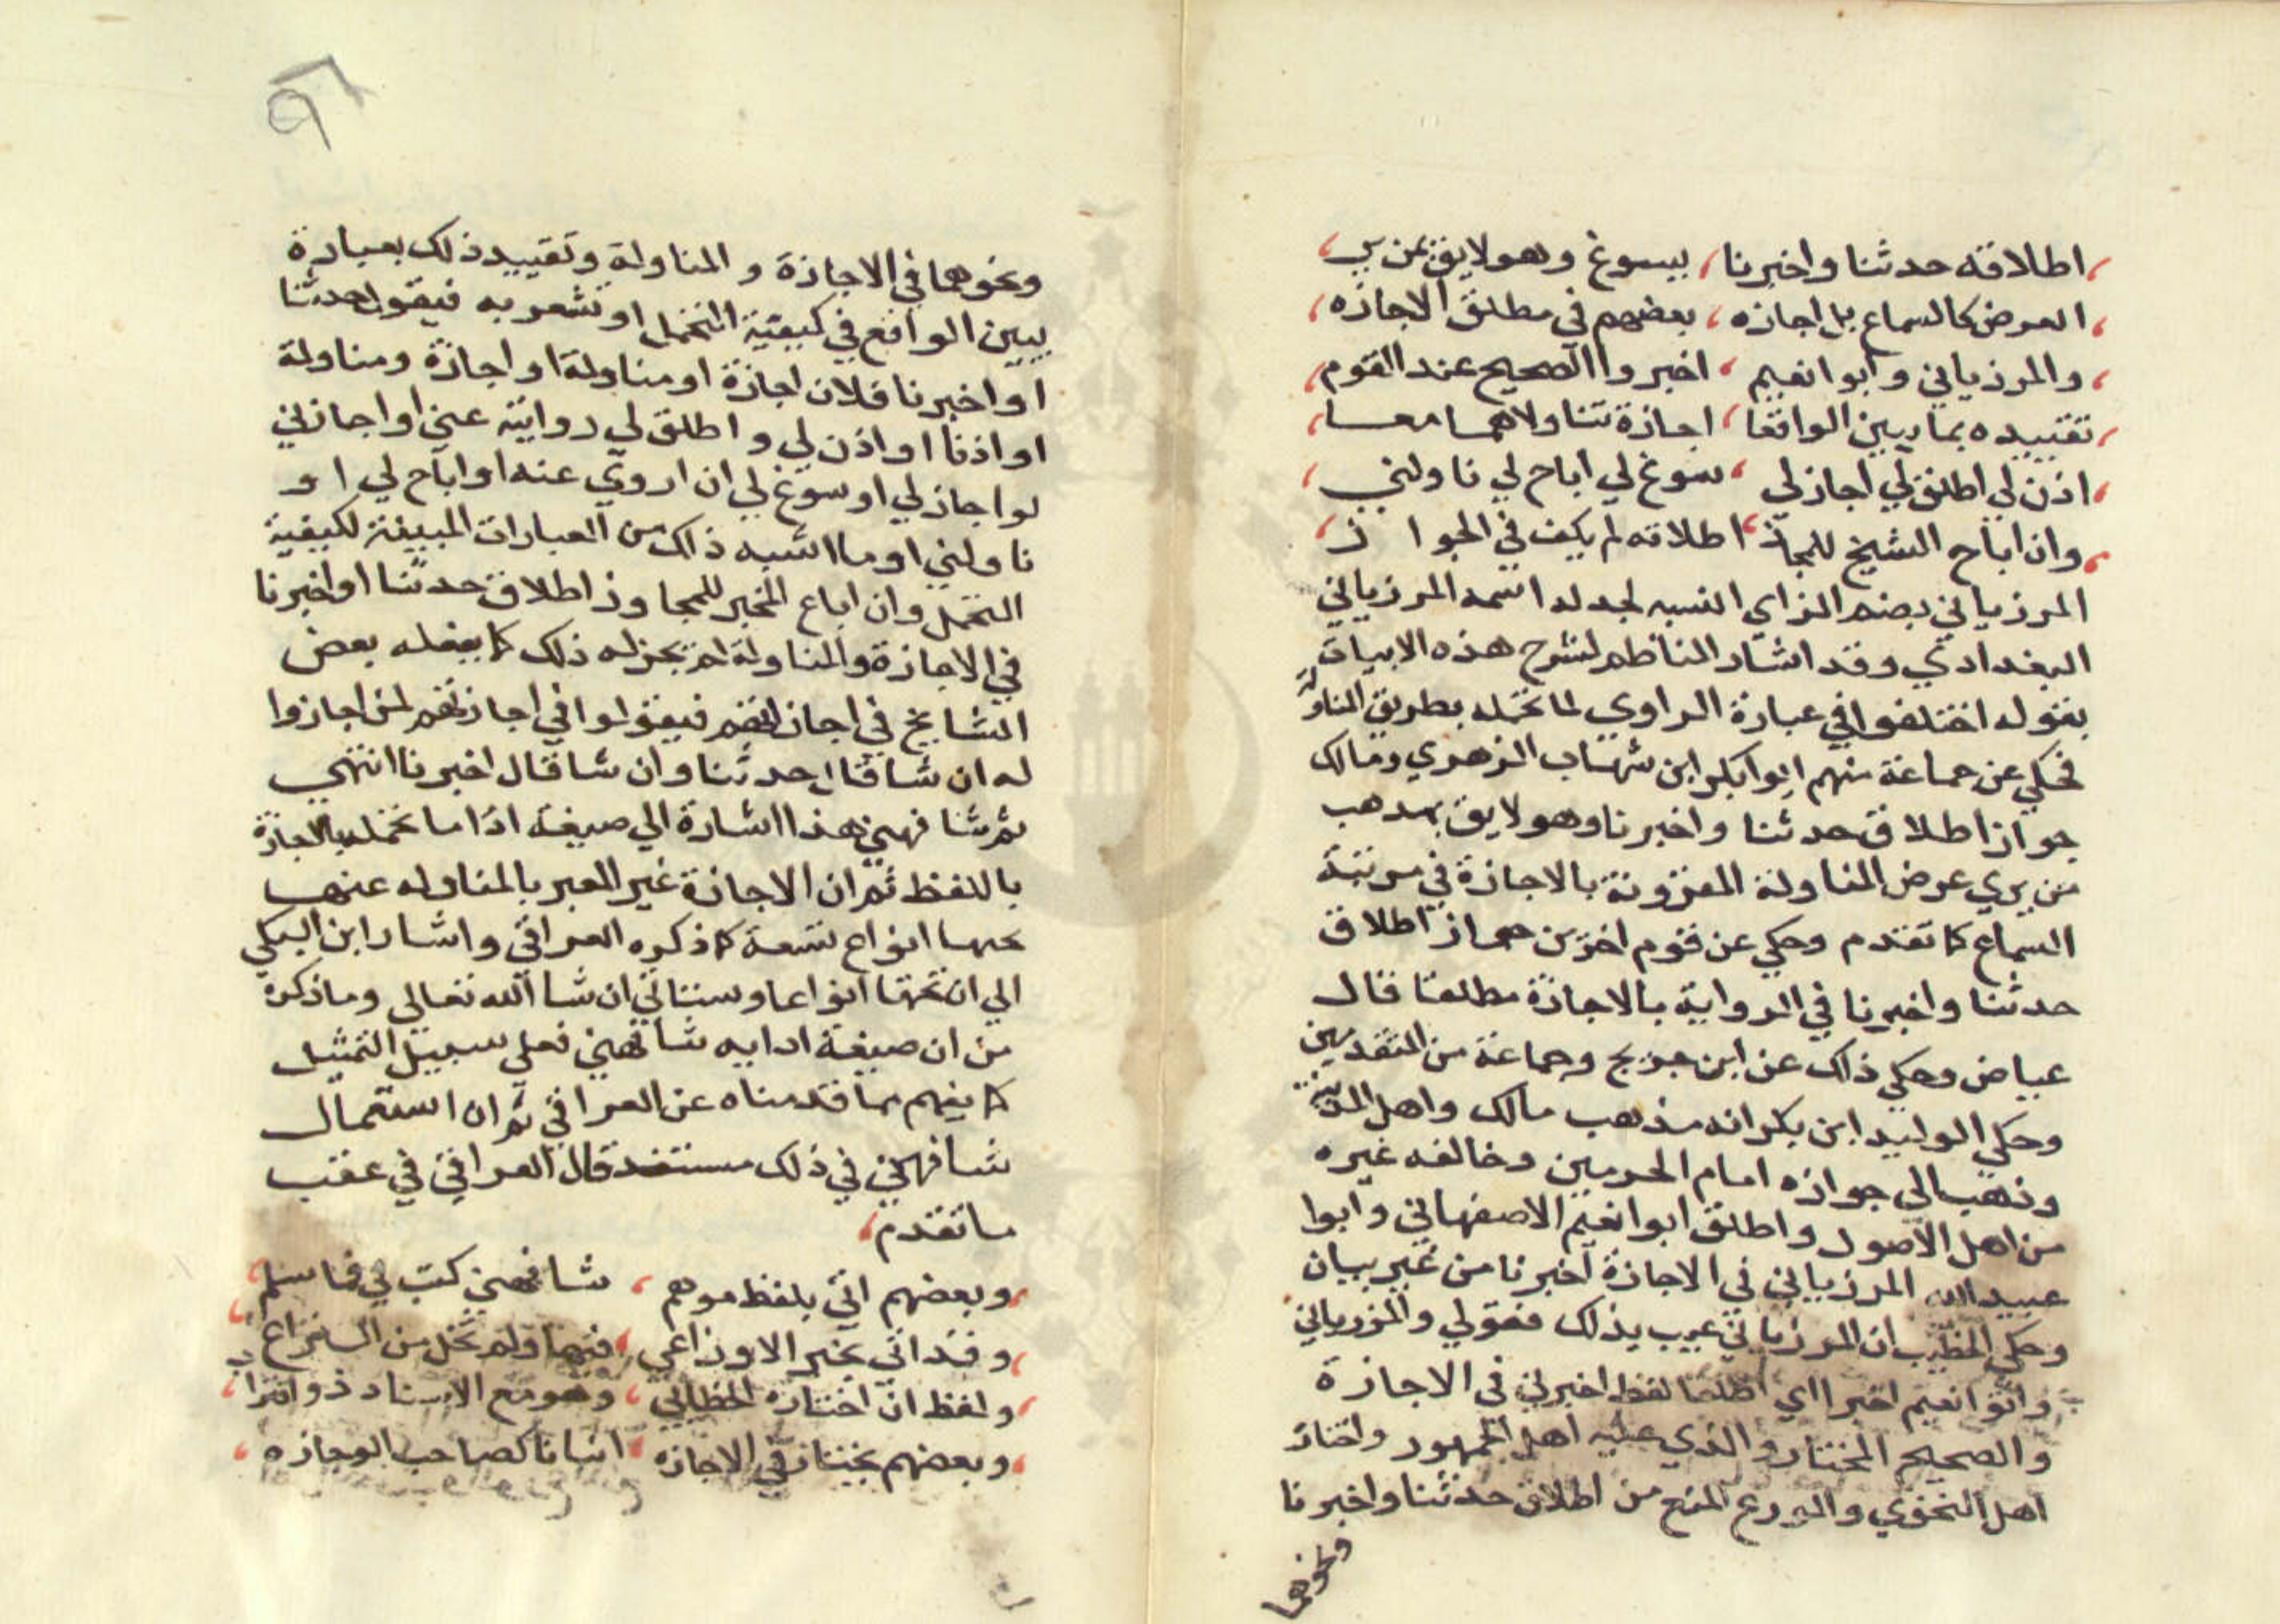 اطلاقه حدثنا واخبرنا، يسوغ وهو لايق بمن يري
العرض كالسماع بل اجازه، بعضهم في مطلق الاجازه
والمرزباني وابو انعيم، اخبر واالصحيح عند القوم
تقييده بما يبين الواقعا، اجازة تناولا هما معا
اذن لي اطلق لي اجاز لي، سوغ لي اباح لي ناولني
وان اباح الشيخ للمجاز، اطلاقه لم يكف في الجواز
المرزباني بضم الزاي النسبه لجد له اسمه المرزباني
البغدادي وقد اشار الناظم لشرح هذه الابيات
بقوله اختلفوا في عبارة الراوي لما تحمله بطريق المناولة
فحكي عن جماعة منهم ابوا بكر ابن شهاب الزهري ومالك
جواز اطلاق حدثنا واخبرنا وهو لايق بمدهب
من يري عرض المناولة المقرونة بالاجازة في مرتبة
السماع كا تقدم وحكي عن قوم اخرين جواز اطلاق
حدثنا واخبرنا في الرواية بالاجازة مطلقا قال
عياض وحكي ذلك عن ابن جريج وجماعة من المتقدمين
وحكي الوليد ابن بكر انه مذهب مالك واهل المدينة
وذهب الي جوازه امام الحرمين وخالفه غيره
من اهل الاصول واطلق ابوا نعيم الاصفهاني وابوا
عبيد الله المرزباني في الاجازة اخبرنا من غير بيان
وحكي الخطيب ان المرزباني عيب بذلك فقولي والمزرباني
وابوا نعيم اخبرا اي اطلقا لفظ اخبرني في الاجازة
والصحيح المختار والذي عليه اهل الجمهور واختار
اهل التحوي والورع المنع من اطلاق حدثنا واخبرنا
ونحوهما
ونحوهما في الاجازة والمناولة وتقييد ذلك بعبارة
يبين الواقع في كيفية التحمل او تشعر به فيقول حدثنا
او اخبرنا فلان اجازة او مناولة او اجازة ومناولة
او اذنا او اذن لي و اطلق لي روايته عني او اجازني
لو اجاز لي او سوغ لي ان اروي عنه او اباح لي او
ناولني او ما اشبه ذلك من العبارات المبينة لكيفية
التحمل وان اباع المخبر للمجاوز اطلاق حدثنا او اخبرنا
في الاجازة والمناولة لم يجز له ذلك كا يفعله بعض
المشايخ في اجازاتهم فيقولوا في اجازتهم لمن اجازوا
له ان شا قال حدثنا وان شا قال اخبرنا انتهي
ثم شافهني هذا اشارة الي صيغة اذا ما تحمله بالاجازة
باللفظ ثم ان الاجازة غير المعبر بالمناوله عنها
عنها انواع تسعة كا ذكره العراقي واشار ابن السبكي
الي ان تحتها انواعا وستاتي ان شا الله تعالي وما ذكره
من ان صيغة ادايه شافهني فعلي سبيل التمثيل
كا يفهم مما قدمناه عن العراقي ثم ان استعمال
شافهني في ذلك منتقد قال العراقي في عقب
ما تقدم،
وبعضهم اتي بلفظ موهم، شافهني كتب لي فما سلم
وقد اتي بخبر الاوزاعي، فيها ولم تخل من النزاع
ولفظ ان اختاره الخطابي، وهو مع الاسناد ذو اقتراب
وبعضهم يختار في الاجازه، انبانا كصاحب الوجازه